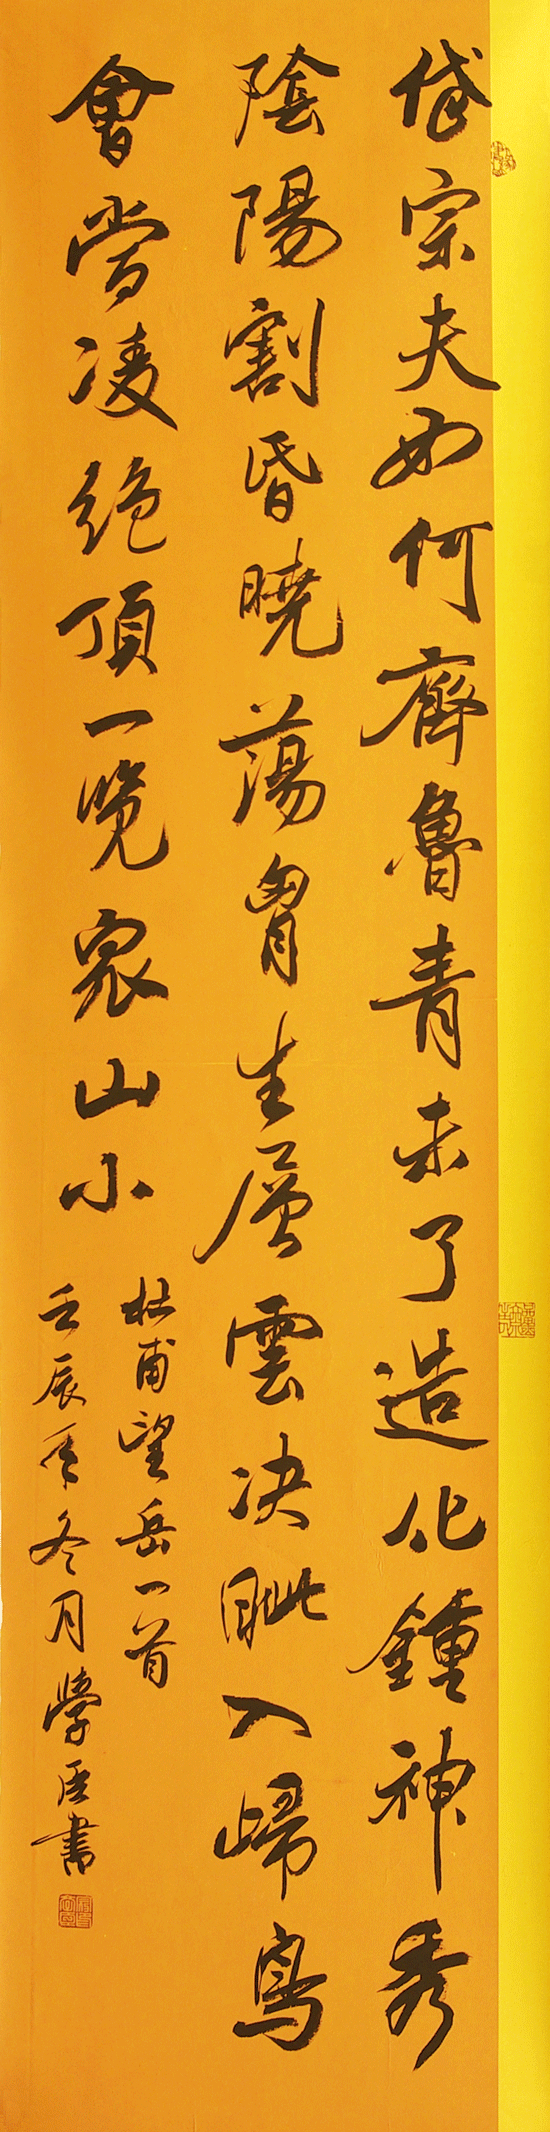 岱宗夫如何齊魯青未了造化鍾神秀
陰陽割昏曉蕩胷生層雲决眦入歸鳥
會當凌絕頂一覽衆山小
杜甫望岳一首
壬辰年冬月學臣書